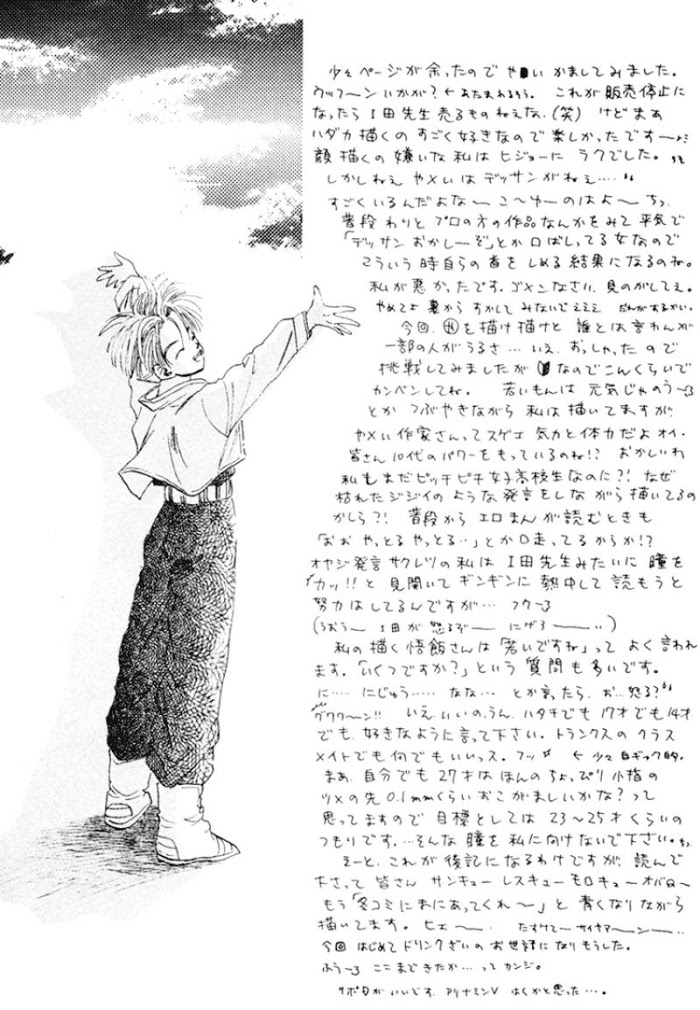 少々ページが余ったのでや いかましてみました。
ウッフ〜ンいかが?← あたまわるそう。 これが販売停止に
なったらI田先生売るものねえな。(笑) けどまぁ
ハダカ描くのすごく好きなので楽しかったです〜
顔描くの嫌いな私はヒジョーにラクでした。
しかしねぇ やメいはデッサンがねぇ‥‥
すごくいるんだよな〜 こ〜ゆーのはよ〜 ちっ
普段わりとプロの方の作品なんかをみて平気で
「デッサンおかしーぞ」とか口ばしってる女なので
こういう時自らの首をしめる結果になるのね。
私が悪かったです。ゴメンなさい。見のがしてぇ。
やめてよ裏からすかしてみないでえええ
今回、 を描け描けと誰とは言わんが
一部の人がうるさ…いえ、おっしゃったので
挑戦してみましたが なのでこんくらいで
カンベンしてね。 若いもんは元気じゃのう〜3
とかつぶやきながら私は描いてますが、
やメい作家さんってスゲエ気力と体力だよオイ。
皆さん10代のパワーをもっているのね!? おかしいわ
私もまだピッチピチ女子高校生なのに?! なぜ
枯れたジジイのような発言をしながら描いてるの
かしら?! 普段からエロまんが読むときも
「おおやっとるやっとる‥」とか口走ってるからか!?
オヤジ発言サクレツの私はI田先生みたいに瞳を
カッ!!と見開いてギンギンに熱中して読もうと
努力はしてるんですが… フウ〜3
(うおうー I田が怒るぞー にげろー‥)
私の描く悟飯さんは「若いですね」ってよく言われ
ます。「いくつですか?」という質問も多いです。
に‥‥にじゅう‥‥なな…とか言ったら、お…怒る?
グワワ〜ン!! いえ、いいの、うん、ハタチでも17才でも14才
でも、好きなように言って下さい。トランクスのクラス
メイトでも何でもいいっス。フッ ← 少々自ギャク的。
まぁ、自分でも27才はほんのちょっぴり小指の
ツメの先0.1mmくらいおこがましいかな?って
思ってますので目標としては23〜25才くらいの
つもりです。…そんな瞳を私に向けないで下さい。
えーと、これが後記になるわけですが、読んで
下さって皆さんサンキューレスキューモロキューオバQ〜
もう「冬コミにまにあってくれ〜」と青くなりながら
描いてます。ヒェ〜。 たすけてーサイヤマーン‥
今回はじめてドリンクざいのお世話になりもうした。
ふう〜3 ここまできたか…ってカンジ。
リポDがいいです。アリナミンVはくかと思った…。